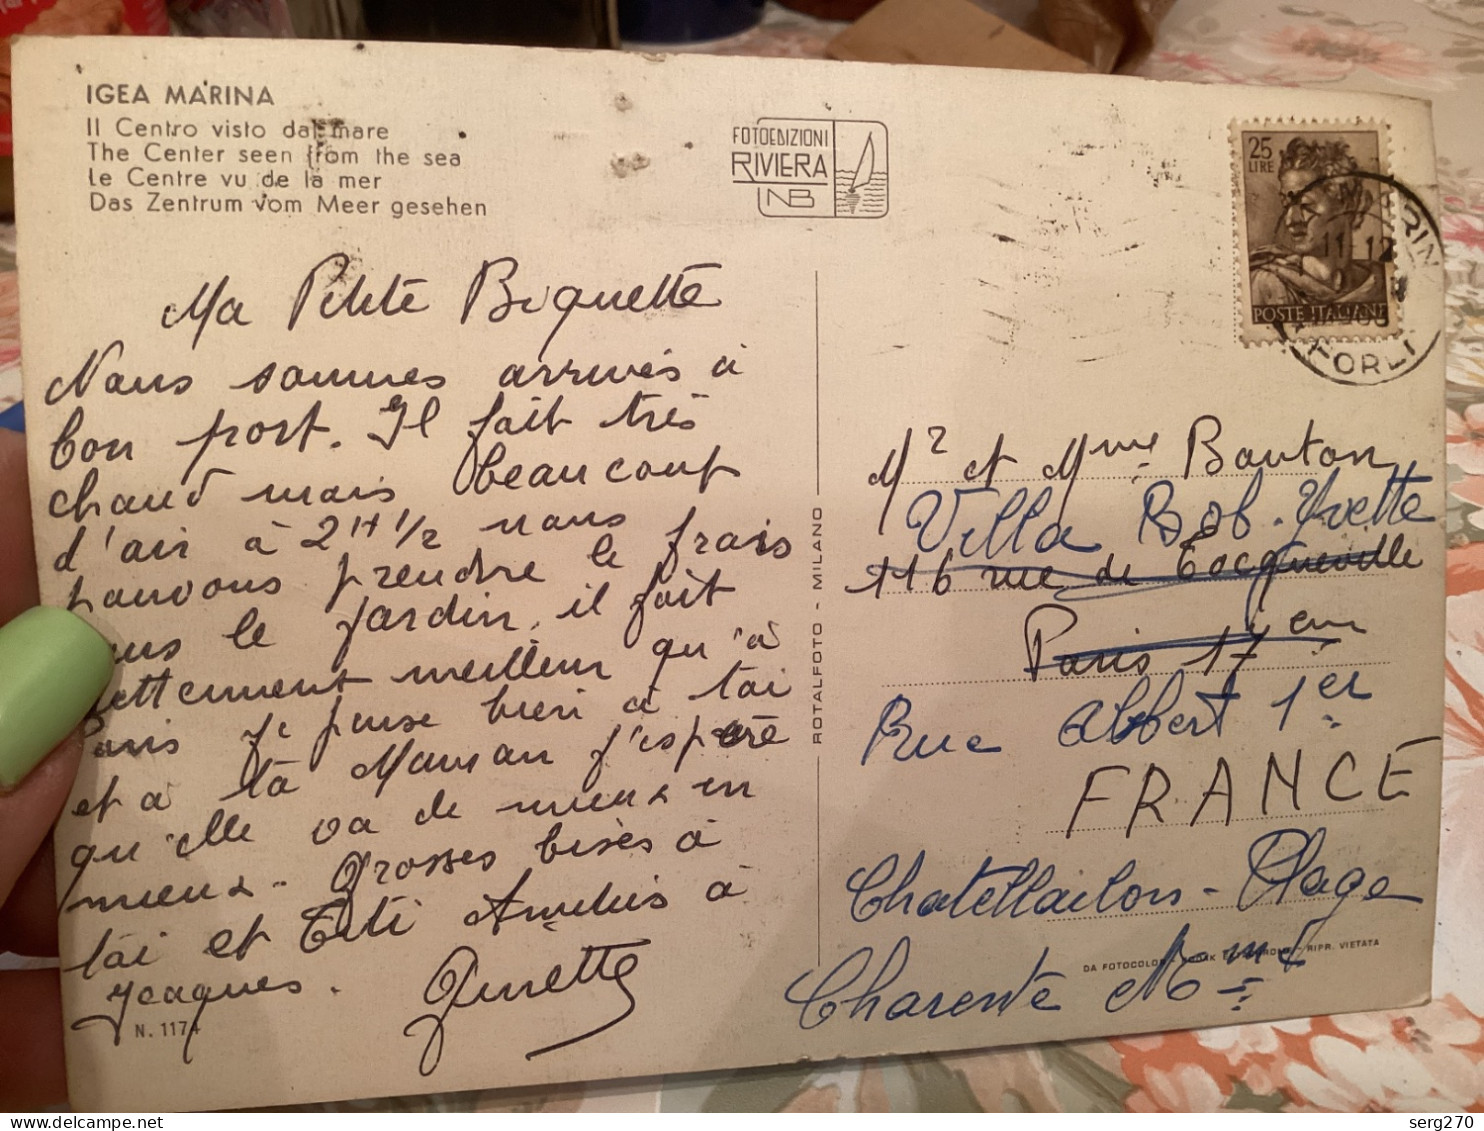 IGEA MARINA
Il Centro visto dal mare
The Center seen from the sea
Le Centre vu de la mer
Das Zentrum vom Meer gesehen
FOTOEDIZIONI
RIVIERA
NB
25
LIRE
POSTE ITALIANE
MARIN
11-12
FORLI
Ma Petite Biquette
Nous sommes arrivés à
bon port. Il fait très
chaud mais beaucoup
d'air à 2H 1/2 nous
pouvons prendre le frais
le jardin, il fait
nettement meilleur qu'à
Paris je pense bien à toi
et à ta Maman j'espère
qu'elle va de mieux en
mieux - Grosses bises à
toi et Titi Amitiés à
Jacques. Ginette
N. 1174
ROTALFOTO - MILANO
Mr et Mme Bouton
Villa Bob-Yvette
116 rue de Tocqueville
Paris 17 em
Rue Albert 1er
FRANCE
Chatellaillon-Plage
Charente Mme
DA FOTOCOLOR RIPR. VIETATA
serg270